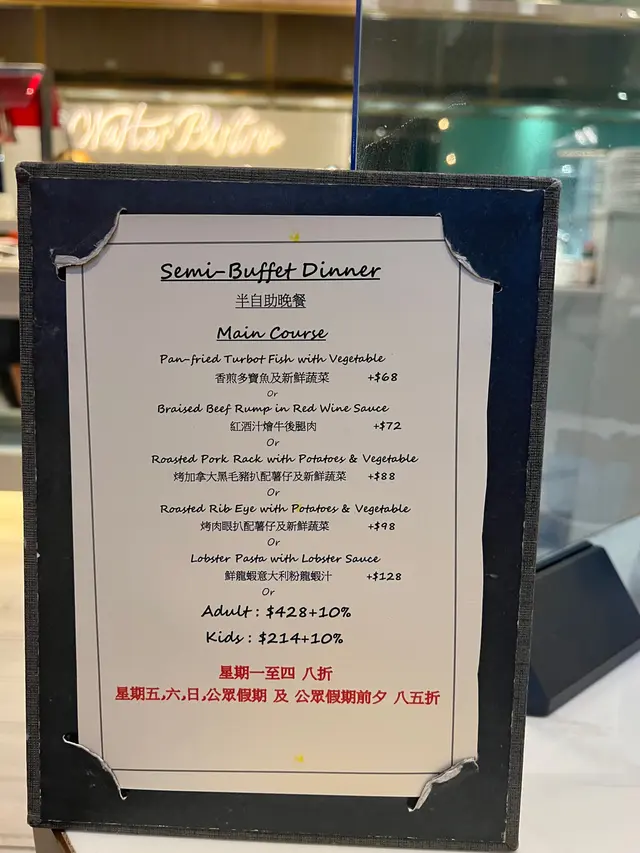 Walter Bistro
Semi-Buffet Dinner
半自助晚餐
Main Course
Pan-fried Turbot Fish with Vegetable
香煎多寶魚及新鮮蔬菜 +$68
Or
Braised Beef Rump in Red Wine Sauce
紅酒汁燴牛後腿肉 +$72
Or
Roasted Pork Rack with Potatoes & Vegetable
烤加拿大黑毛豬扒配薯仔及新鮮蔬菜 +$88
Or
Roasted Rib Eye with Potatoes & Vegetable
烤肉眼扒配薯仔及新鮮蔬菜 +$98
Or
Lobster Pasta with Lobster Sauce
鮮龍蝦意大利粉龍蝦汁 +$128
Or
Adult : $428+10%
Kids : $214+10%
星期一至四 八折
星期五,六,日,公眾假期 及 公眾假期前夕 八五折